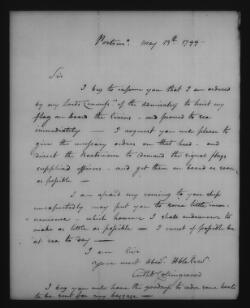 Portsm.o May 13th 1799
Sir
I beg to inform you that I am ordered
by my Lords Commiss.rs of the Admiralty to hoist my
flag on board the and proceed to sea
immediately — I request you will please to
give the necessary orders on that head - and
direct the Boatswain to demand the signal flags
supplied officers - and get them on board as soon
as possible —
I am afraid my coming to your ship
unexpectedly may put you to some little incon-
venience - which however I shall endeavour to
make as little as possible — I must if possible be
at sea to day —
I am Sir
your most
Cuthbt Collingwood
I beg you will have the goodness to order some boats
to be sent for my baggage —